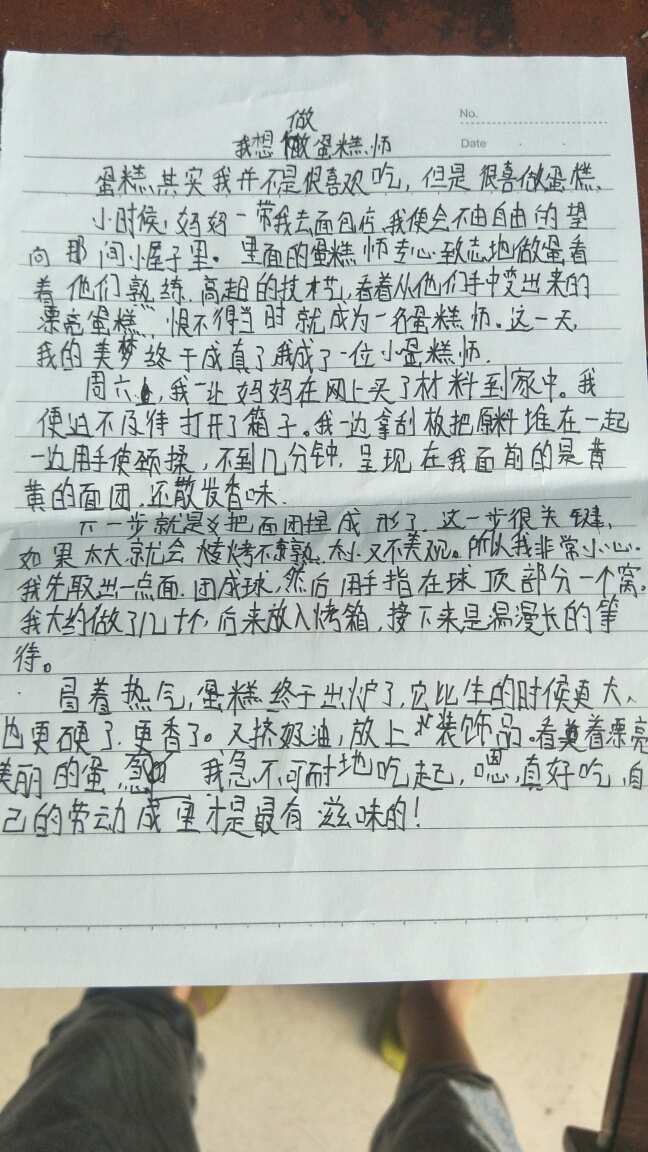 No.
Date
做
我想做蛋糕师
蛋糕其实我并不是很喜欢吃，但是很喜做蛋糕、
小时候，妈妈一带我去面包店，我便会不由自由的望
向那间小屋子里。里面的蛋糕师专心致志地做蛋看
着他们孰练、高超的技术艺，看着从他们手中变出来的
漂亮蛋糕，恨不得当时就成为一名蛋糕师。这一天，
我的美梦终于成真了我成了一位小蛋糕师.
周六，我让妈妈在网上买了材料到家中。我
便迫不及待打开了箱子。我一边拿刮板把原料堆在一起
一边用手使颈揉，不到几分钟，呈现在我面前的是黄
黄的面团，还散发香味.
下一步就是把面团捏成形了，这一步很关键，
如果太大就会烤不熟，太小又不美观。所以我非常小心。
我先取出一点面，团成球，然后用手指在球顶部分一个窝。
我大约做了几十个，后来放入烤箱，接下来是漫长的等
待。
冒着热气，蛋糕终于出炉了，它比生的时候更大、
也更硬了，更香了。又挤奶油，放上装饰品。看着漂亮
美丽的蛋，我急不可耐地吃起，嗯，真好吃，自
己的劳动成果才是最有滋味的！